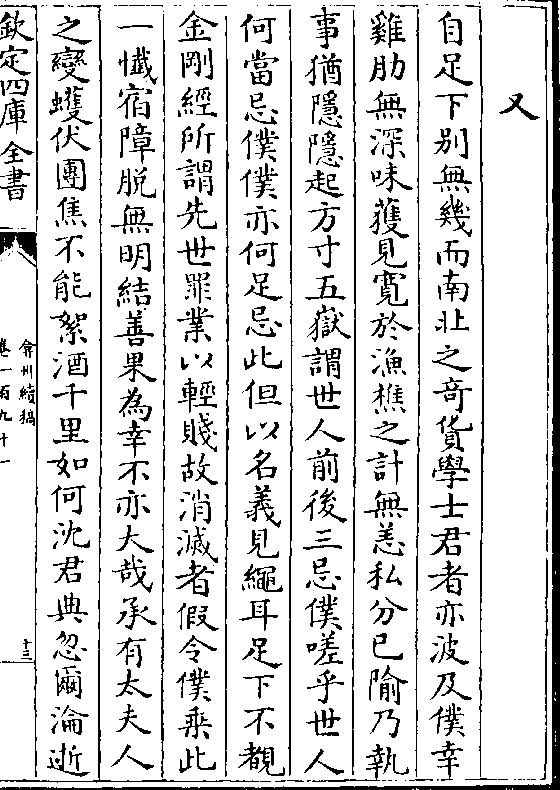 又
自足下别無幾而南北之奇貨學士君者亦波及僕幸
雞肋無深味獲見寛於漁樵之計無恙私分已隃乃執
事猶隱隱起方寸五嶽謂世人前後三忌僕嗟乎世人
何當忌僕僕亦何足忌此但以名義見繩耳足下不覩
金剛經所謂先世罪業以輕賤故消滅者假令僕乘此
一懴宿障脱無明結善果為幸不亦大哉承有太夫人
之變蠖伏團焦不能絮酒千里如何沈君典忽爾淪逝
欽定四庫全書
弇州續稿
卷一百九十一
十三